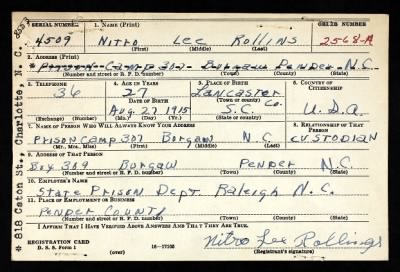 SERIAL NUMBER 1. NAME (Print) ORDER NUMBER
4509 Nitro Lee Rollins 2568-A
(First) (Middle) (Last)
2. ADDRESS (Print)
Prison Camp 302- Burgaw Pender N.C.
(Number and street or R. F. D. number) (Town) (County) (State)
3. TELEPHONE 4. AGE IN YEARS 5. PLACE OF BIRTH 6. COUNTRY OF CITIZENSHIP
36 27 Lancaster
DATE OF BIRTH (Town or county)
Aug. 27 1915 S.C. Co. U.S.A.
(Exchange) (Number) (Mo.) (Day) (Yr.) (State or country)
7. NAME OF PERSON WHO WILL ALWAYS KNOW YOUR ADDRESS 8. RELATIONSHIP OF THAT PERSON
Prison Camp 302 Burgaw N.C. CUSTODIAN
(Mr., Mrs., Miss) (First) (Middle) (Last)
9. ADDRESS OF THAT PERSON
Box 309 Burgaw Pender N.C.
(Number and street or R. F. D. number) (Town) (County) (State)
10. EMPLOYER'S NAME
State Prison Dept. Raleigh N.C.
11. PLACE OF EMPLOYMENT OR BUSINESS
Pender County
(Number and street or R. F. D. number) (Town) (County) (State)
I AFFIRM THAT I HAVE VERIFIED ABOVE ANSWERS AND THAT THEY ARE TRUE.
REGISTRATION CARD
D. S. S. Form 1 (over) 16-17105 Nitro Lee Rollings
(Registrant's signature)
* 818 Caton St., Charlotte, N. C.